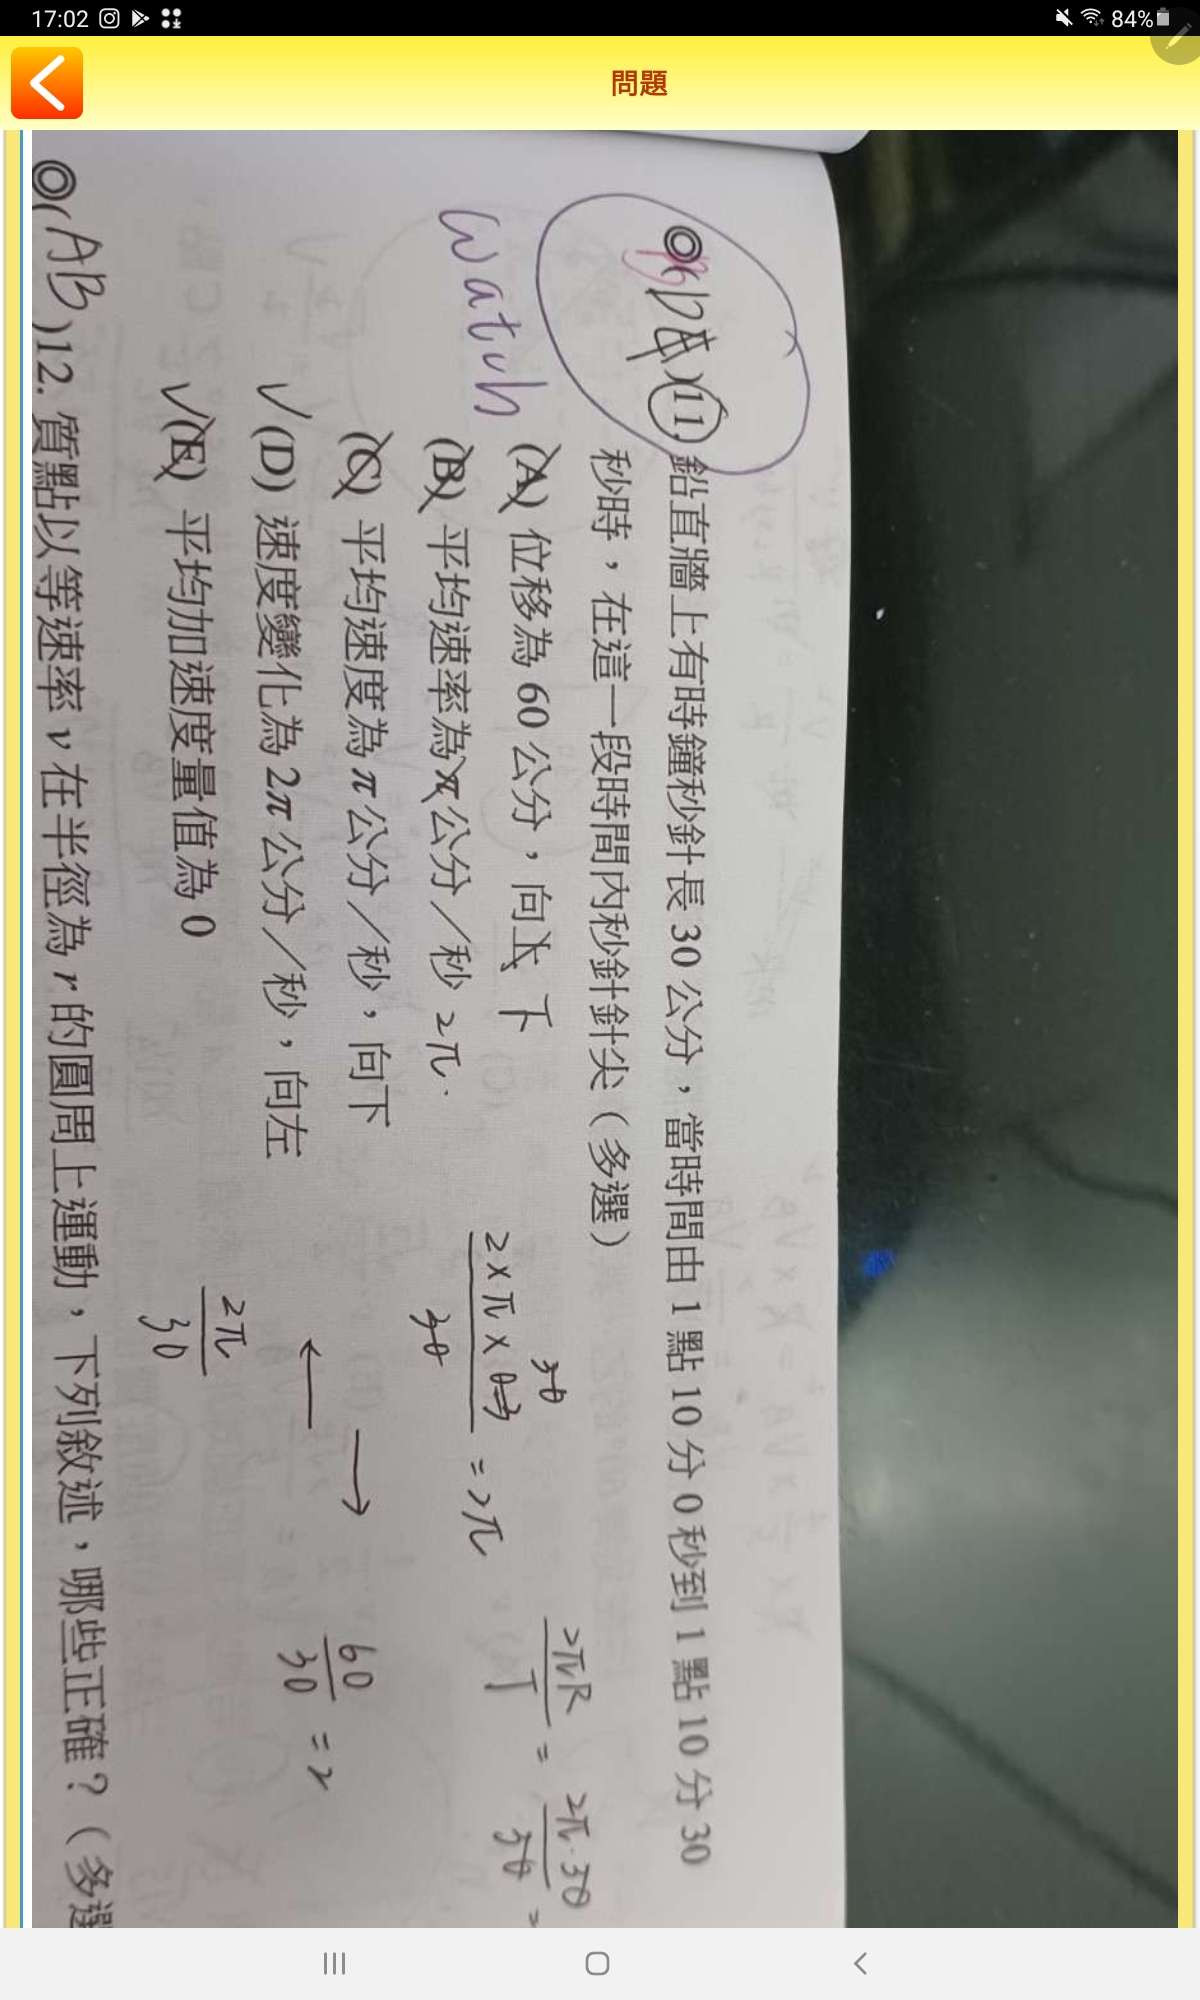 17:02
84%
問題
◎( )11. 鉛直牆上有時鐘秒針長 30 公分，當時間由 1 點 10 分 0 秒到 1 點 10 分 30
秒時，在這一段時間內秒針針尖（多選）
(A) 位移為 60 公分，向上 下
(B) 平均速率為 π 公分／秒 2π.
(C) 平均速度為 π 公分／秒，向下
(D) 速度變化為 2π 公分／秒，向左
(E) 平均加速度量值為 0
Watch
2πR/T = 2π·30/30 =
= 2π
60/30 = 2
2π/30
◎(AB)12. 質點以等速率 v 在半徑為 r 的圓周上運動，下列敘述，哪些正確？（多選